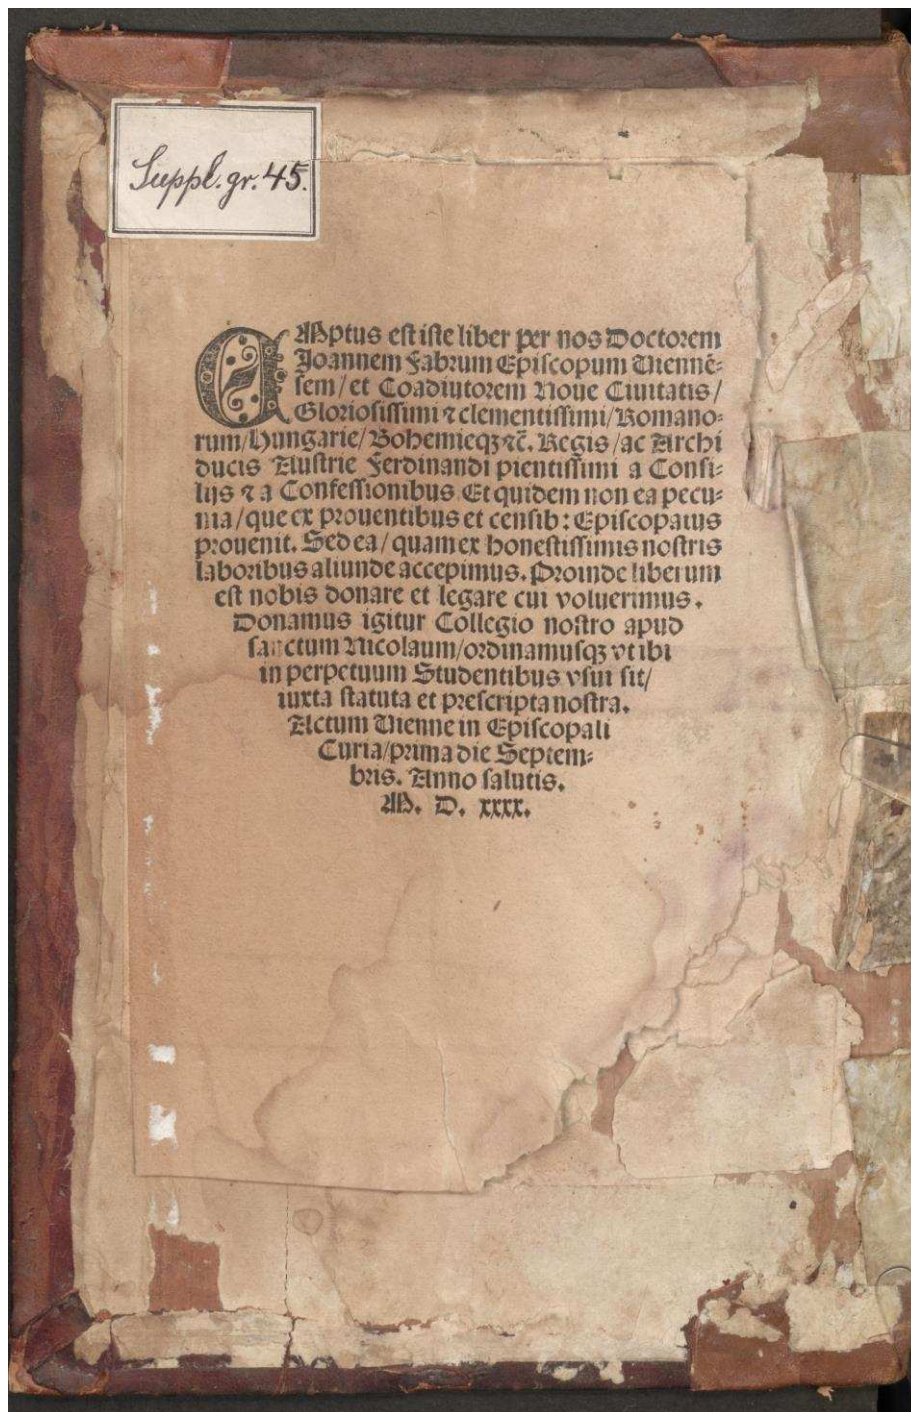 Suppl. gr. 45.
EMptus est iste liber per nos Doctorem
Joannem Fabrum Episcopum Viennē-
sem/et Coadiutorem Noue Ciuitatis/
Gloriosissimi ⁊ clementissimi/Romano-
rum/Hungarie/Bohemieqꝫ ⁊c̄. Regis/ac Archi
ducis Austrie Ferdinandi pientissimi a Consi-
lijs ⁊ a Confessionibus Et quidem non ea pecu-
nia/que ex prouentibus et censib: Episcopatus
prouenit. Sed ea/quam ex honestissimis nostris
laboribus aliunde accepimus. Proinde liberum
est nobis donare et legare cui voluerimus.
Donamus igitur Collegio nostro apud
sanctum Nicolaum/ordinamusqꝫ vt ibi
in perpetuum Studentibus vsui sit/
iuxta statuta et prescripta nostra.
Actum Vienne in Episcopali
Curia/prima die Septem-
bris. Anno salutis.
M. D. xxxx.